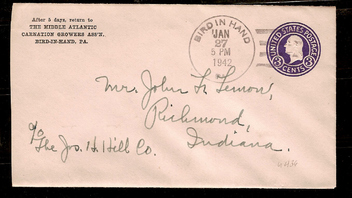 After 5 days, return to
THE MIDDLE ATLANTIC
CARNATION GROWERS ASS'N.
BIRD-IN-HAND, PA.
BIRD IN HAND
JAN
27
5 PM
1942
PA.
UNITED STATES POSTAGE
3 CENTS 3
Mr. John L. Lemon,
Richmond,
Indiana.
c/o
The Jos. H. Hill Co.